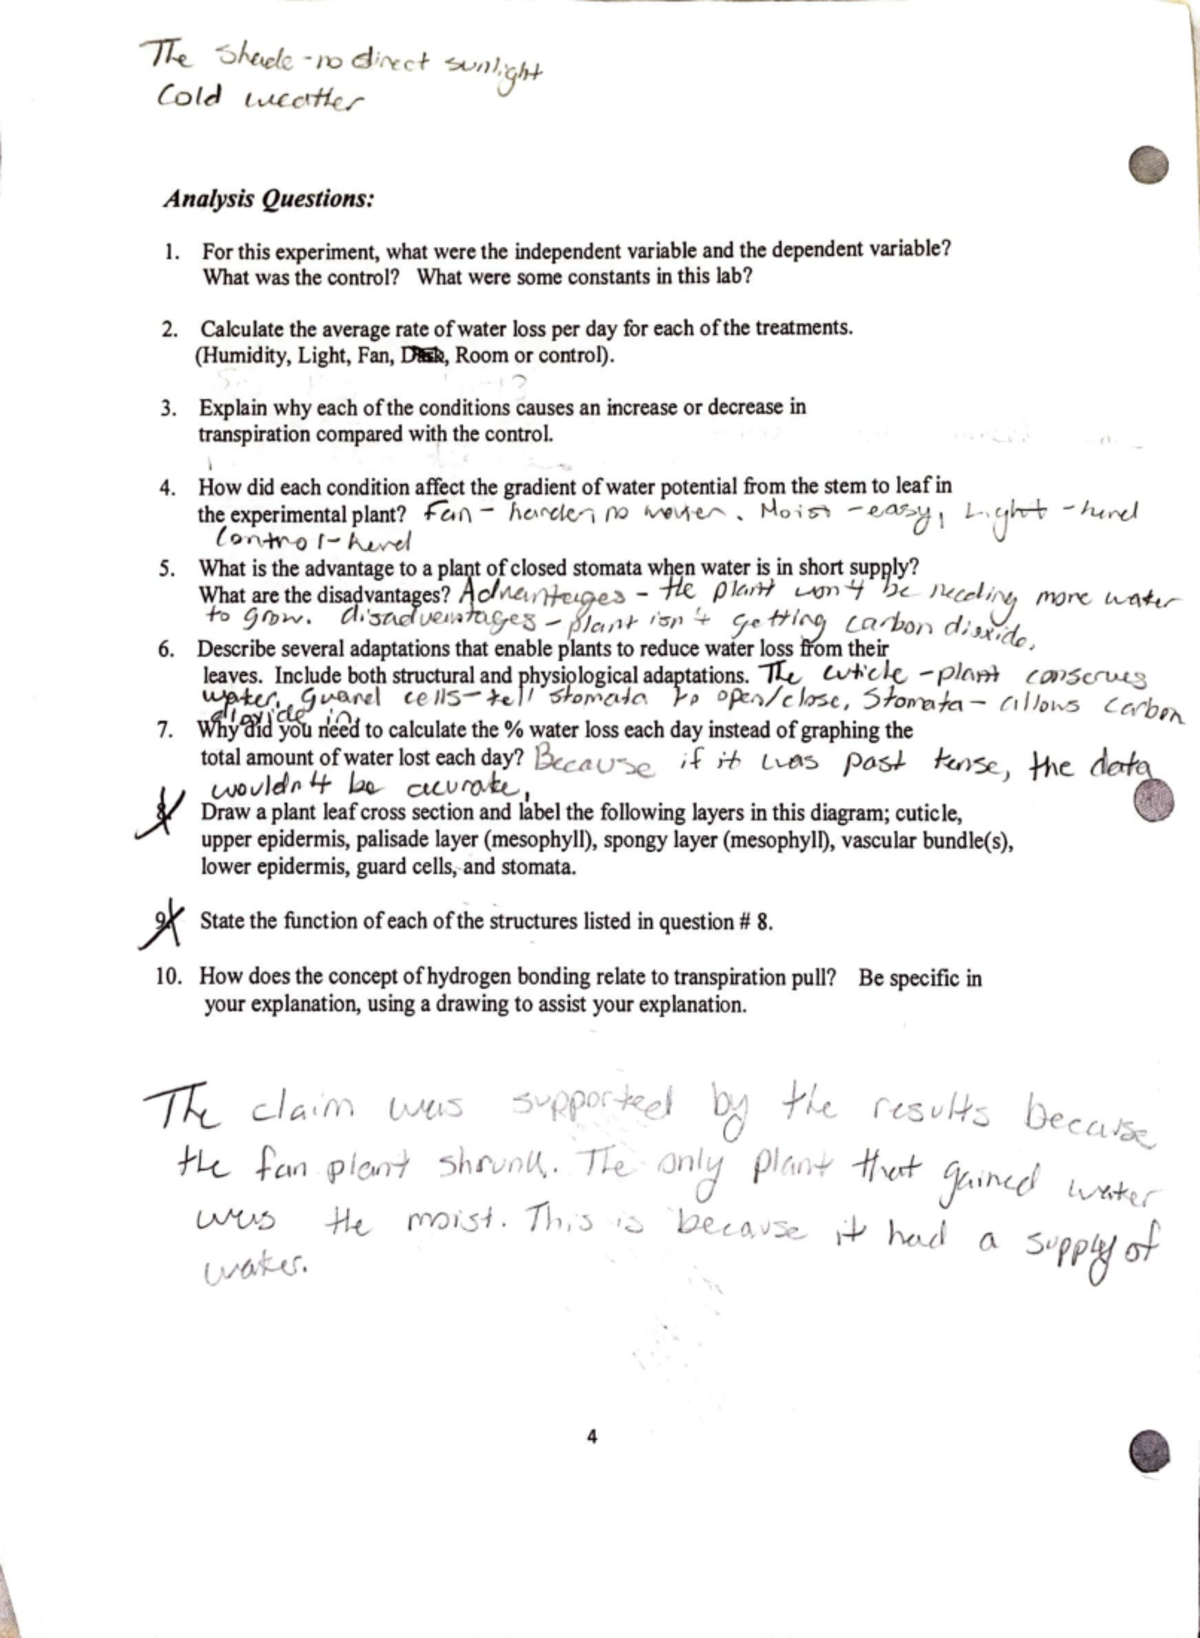 The Shade - no direct sunlight
Cold weather
Analysis Questions:
1. For this experiment, what were the independent variable and the dependent variable?
What was the control? What were some constants in this lab?
2. Calculate the average rate of water loss per day for each of the treatments.
(Humidity, Light, Fan, Dark, Room or control).
3. Explain why each of the conditions causes an increase or decrease in
transpiration compared with the control.
4. How did each condition affect the gradient of water potential from the stem to leaf in
the experimental plant? Fan - harder, no water. Moist - easy, Light - hard
Control - hard
5. What is the advantage to a plant of closed stomata when water is in short supply?
What are the disadvantages? Advantages - the plant won't be needing more water
to grow. disadvantages - plant isn't getting carbon dioxide.
6. Describe several adaptations that enable plants to reduce water loss from their
leaves. Include both structural and physiological adaptations. The cuticle - plant conserves
water, Guard cells - tell stomata to open/close, Stomata - allows carbon
dioxide in
7. Why did you need to calculate the % water loss each day instead of graphing the
total amount of water lost each day? Because if it was past tense, the data
wouldn't be accurate.
8. Draw a plant leaf cross section and label the following layers in this diagram; cuticle,
upper epidermis, palisade layer (mesophyll), spongy layer (mesophyll), vascular bundle(s),
lower epidermis, guard cells, and stomata.
9. State the function of each of the structures listed in question # 8.
10. How does the concept of hydrogen bonding relate to transpiration pull? Be specific in
your explanation, using a drawing to assist your explanation.
The claim was supported by the results because
the fan plant shrunk. The only plant that gained water
was the moist. This is because it had a supply of
water.
4